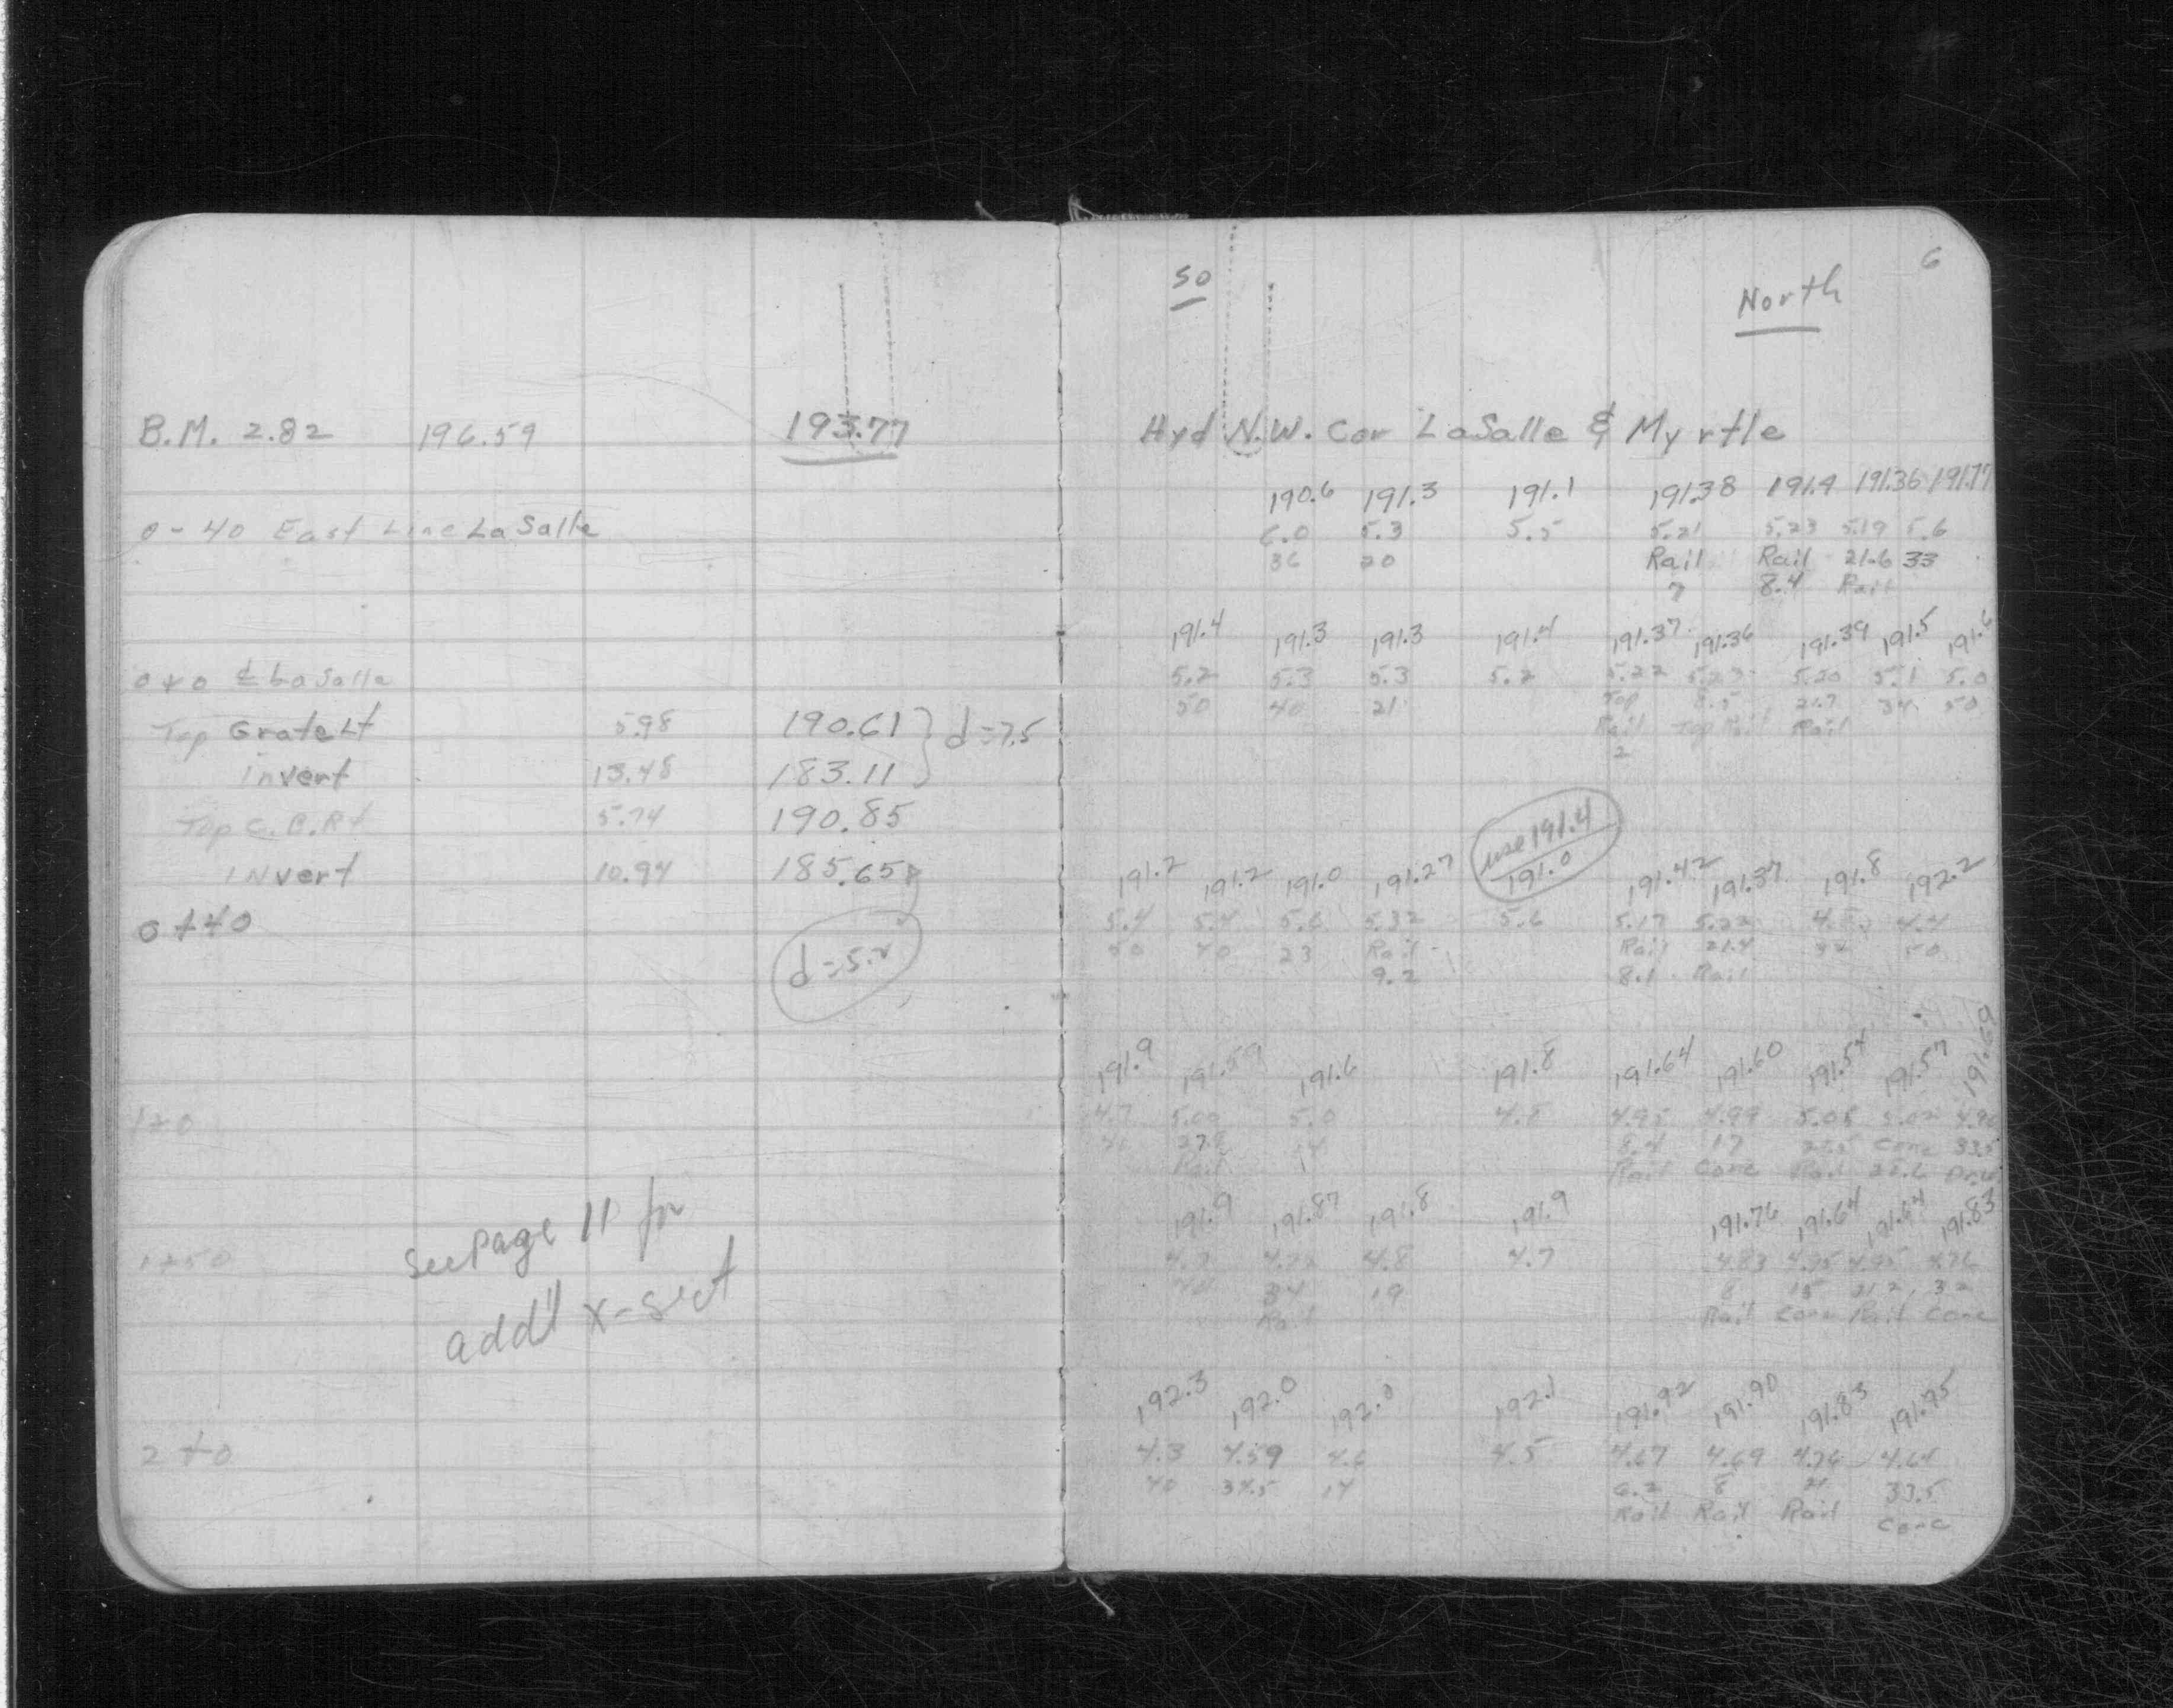 B.M. 2.82 196.59 193.77
0-40 East Line LaSalle
0+0 ₵ LaSalle
Top Grate Lt 5.98 190.61 } d=7.5
invert 13.48 183.11
Top C.B. Rt 5.74 190.85
INvert 10.94 185.65
0+40
d=5.2
1+0
See Page 11 for
1+50
add'l x-sect
2+0
6
So North
Hyd N.W. Cor LaSalle & Myrtle
190.6 191.3 191.1 191.38 191.4 191.36 191.17
6.0 5.3 5.5 5.21 5.23 5.19 5.6
36 20 Rail Rail 21.6 33
7 8.4 Rail
191.4 191.3 191.3 191.4 191.37 191.36 191.39 191.5 191.6
5.2 5.3 5.3 5.2 5.22 5.23 5.20 5.1 5.0
50 40 21 Top 8.5 21.7 34 50
Rail Top Rail Rail
2
use 191.4
191.2 191.2 191.0 191.27 191.0 191.42 191.37 191.8 192.2
5.4 5.4 5.6 5.32 5.6 5.17 5.22 4.8 4.4
50 40 23 Rail Rail 21.4 32 50
9.2 8.1 Rail
191.9 191.59 191.6 191.8 191.64 191.60 191.54 191.57 191.69
4.7 5.00 5.0 4.8 4.95 4.99 5.05 5.02 4.90
27.8 14 8.4 17 Conc 33.5
Rail Rail Conc Rail
191.9 191.87 191.8 191.9 191.76 191.64 191.64 191.83
4.7 4.72 4.8 4.7 4.83 4.95 4.95 4.76
40 34 19 8 15 21.2 32
Rail Rail Conc Rail Conc
192.3 192.0 192.0 192.1 191.92 191.90 191.83 191.95
4.3 4.59 4.6 4.5 4.67 4.69 4.76 4.64
40 34.5 14 6.2 8 21 33.5
Rail Rail Rail Conc